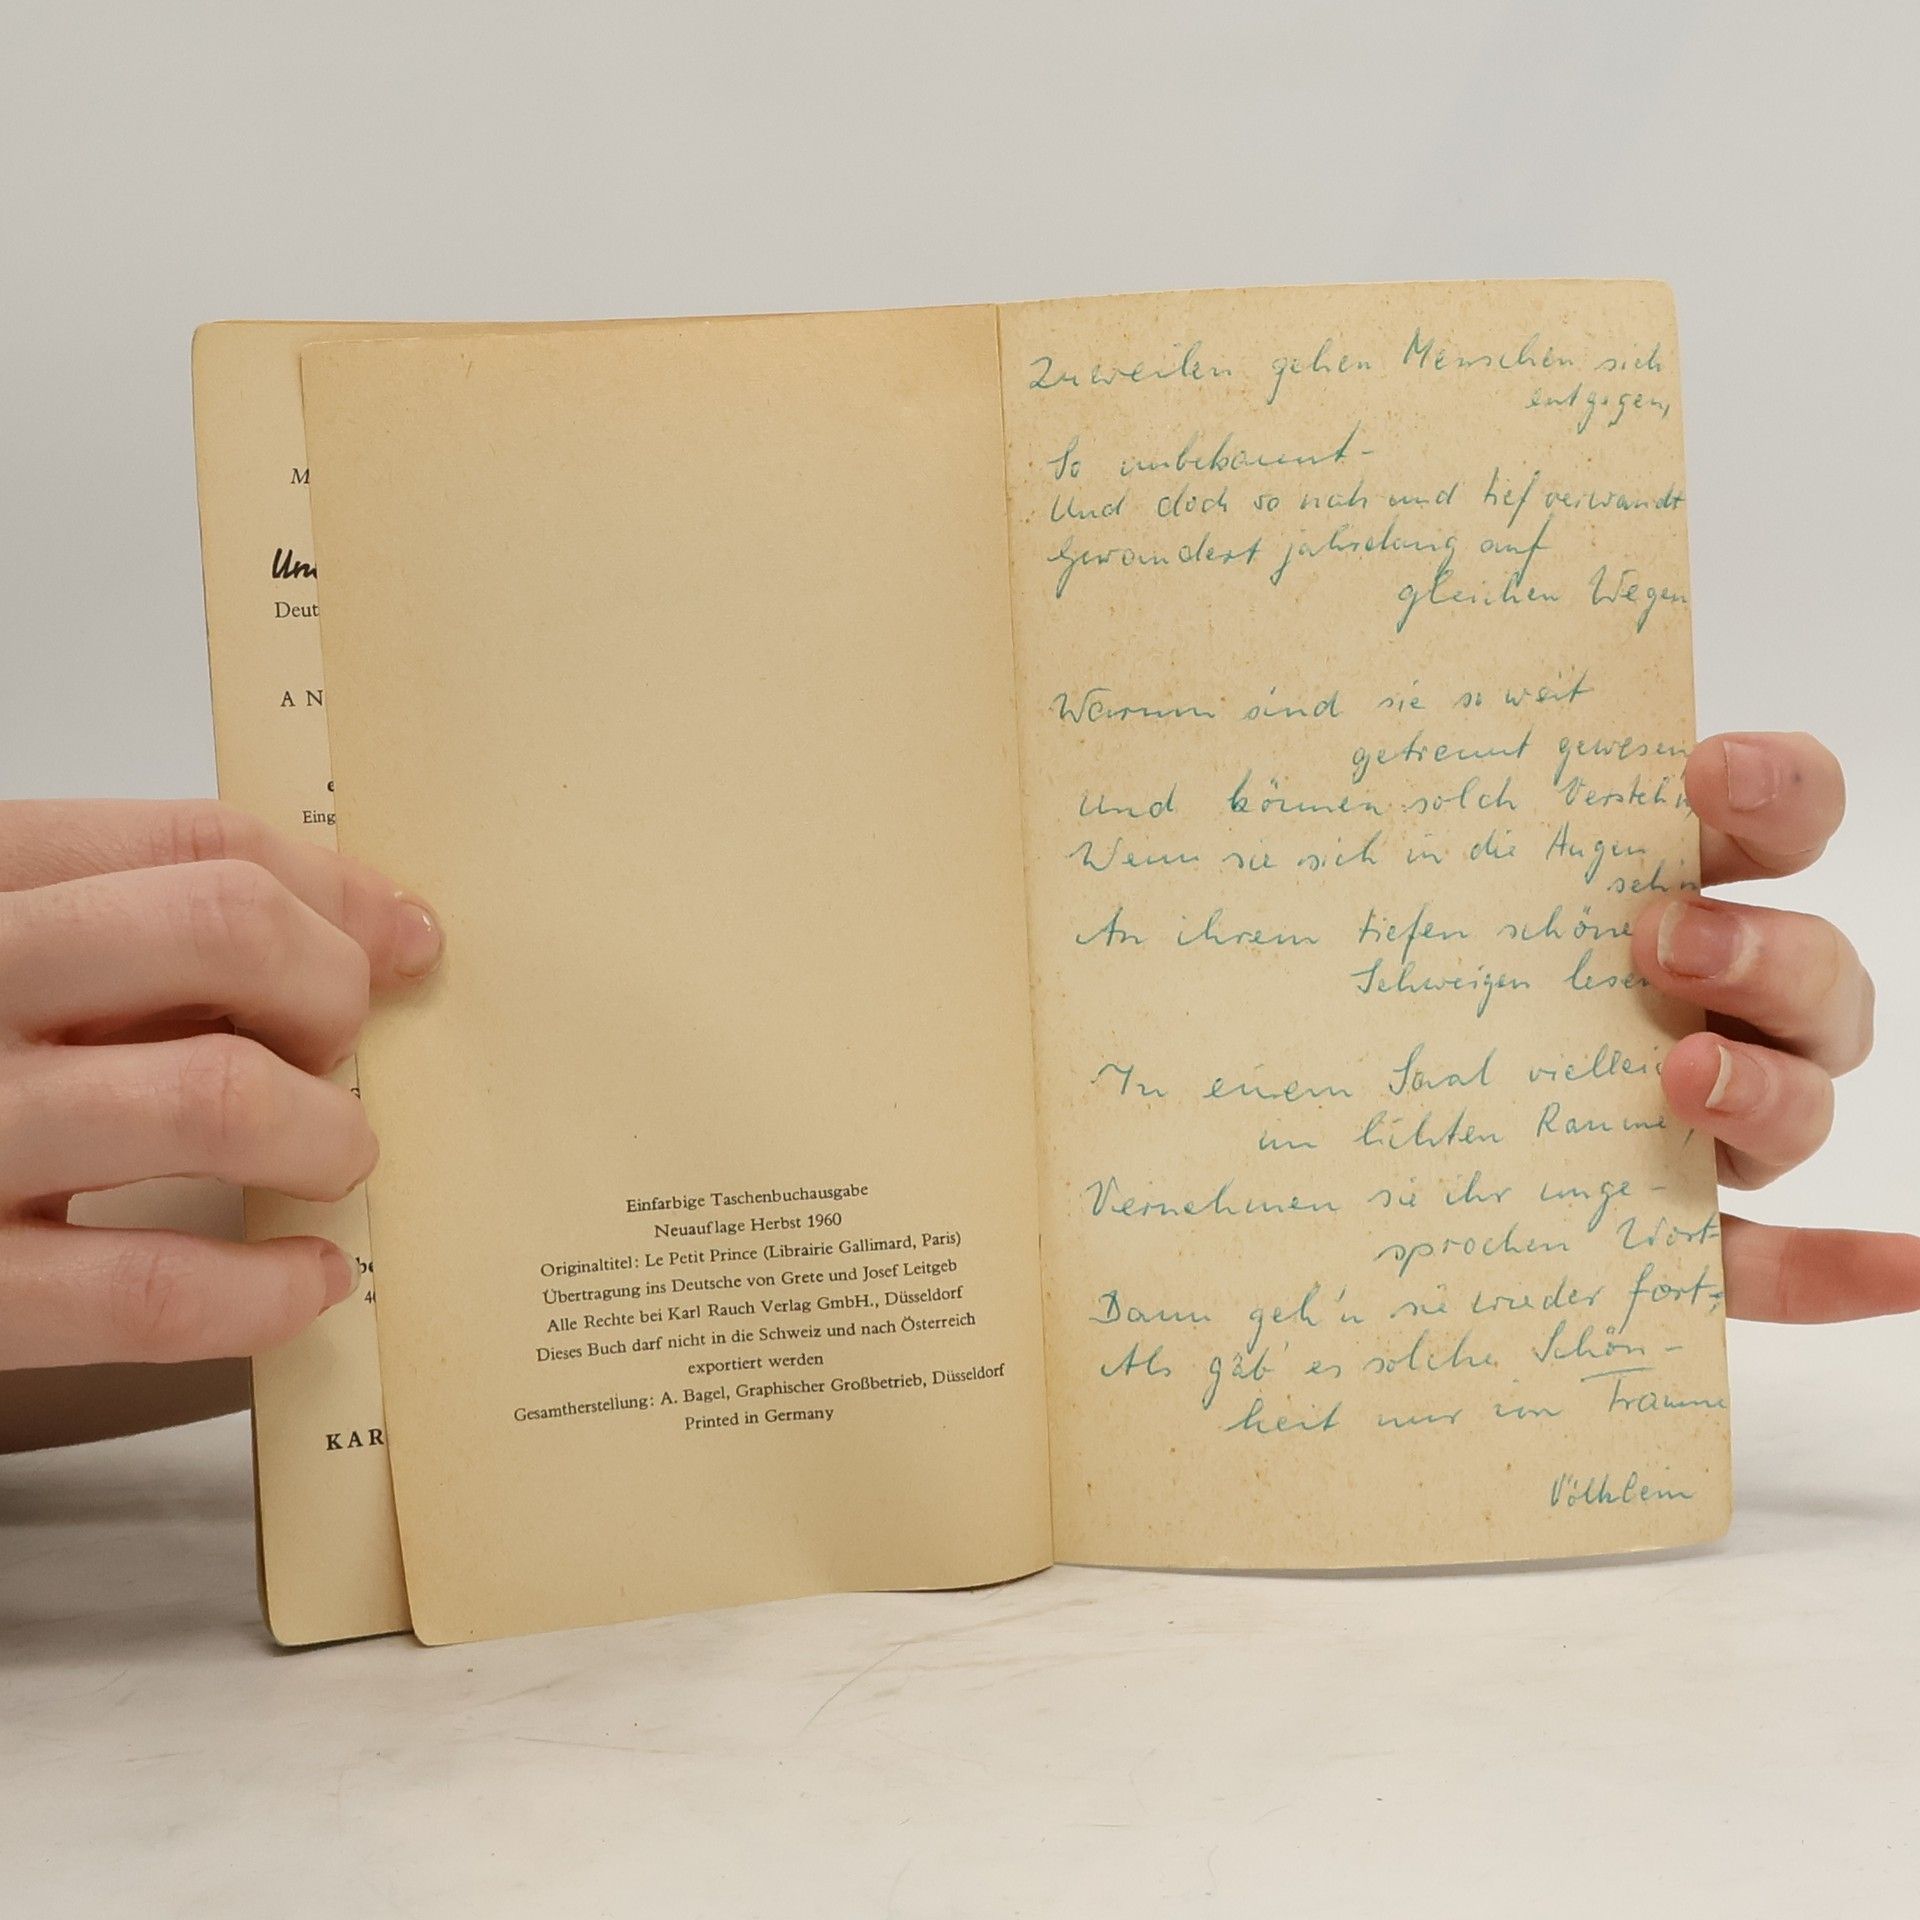 M
Um
Deut
A N
e
Eing
be
KAR
Einfarbige Taschenbuchausgabe
Neuauflage Herbst 1960
Originaltitel: Le Petit Prince (Librairie Gallimard, Paris)
Übertragung ins Deutsche von Grete und Josef Leitgeb
Alle Rechte bei Karl Rauch Verlag GmbH., Düsseldorf
Dieses Buch darf nicht in die Schweiz und nach Österreich
exportiert werden
Gesamtherstellung: A. Bagel, Graphischer Großbetrieb, Düsseldorf
Printed in Germany
Zuweilen gehen Menschen sich
entgegen,
So unbekannt-
Und doch so nah und tief verwandt
Gewandert jahrelang auf
gleichen Wegen
Warum sind sie so weit
getrennt gewesen,
Und können solch Versteh'n,
Wenn sie sich in die Augen
seh'n
An ihrem tiefen schöne
Schweigen lesen
In einem Saal viellei
im lichten Raume,
Vernehmen sie ihr unge-
sprochen Wort-
Dann geh'n sie wieder fort,
Als gäb' es solche Schön-
heit nur im Traume
Völklein